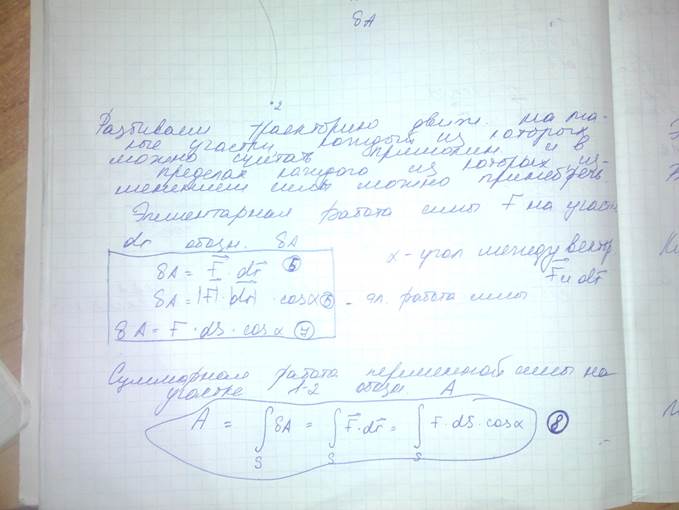 δA
2
Разбиваем траекторию движ. на ма-
лые участки каждый из которых
можно считать прямолин и в
пределах каждого из которых из-
менением силы можно пренебречь.
Элементарная работа силы F на участ
dr обозн. δA
δA = F · dr (5)
α - угол между вектр.
F и dr
δA = |F| · |dr| · cosα (6) - эл. работа силы
δA = F · dS · cosα (7)
Суммарная работа переменной силы на
участке 1-2 обозн. A
A = ∫ δA = ∫ F · dr = ∫ F · dS · cosα (8)
S S S